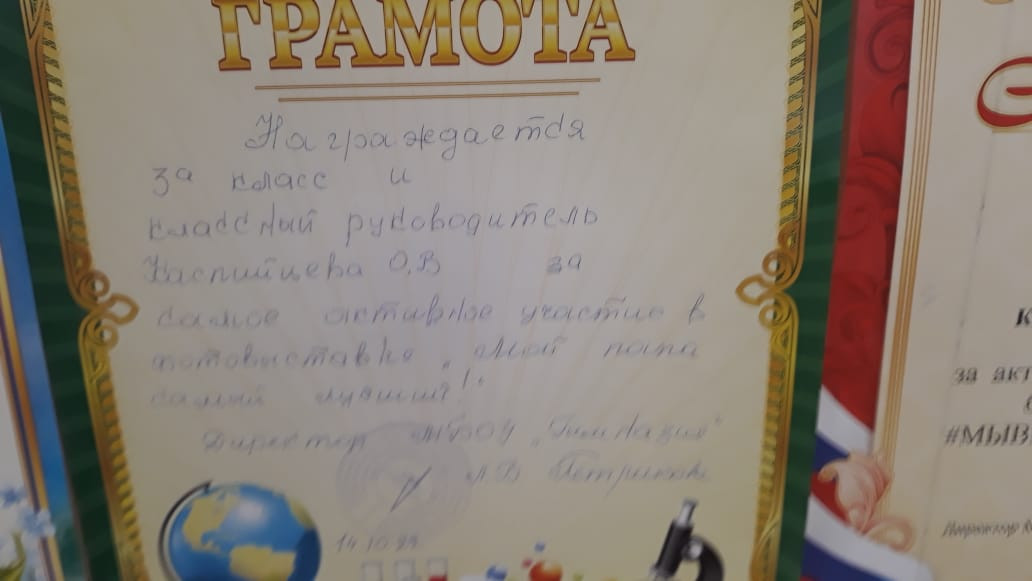 ГРАМОТА
Награждается
3а класс и
классный руководитель
Каспийцева О.В за
самое активное участие в
фотовыставке „Мой папа
самый лучший!"
Директор МБОУ „Гимназия"
Л.В
14.10.21
К
за акт
#МЫВ
Директор